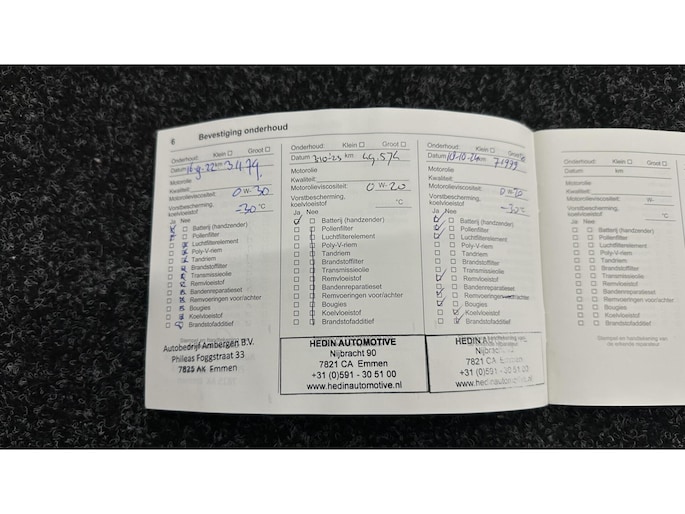 6 Bevestiging onderhoud
Onderhoud: Klein ☐ Groot ☐
Datum 16-9-22 km 3479,
Motorolie
Kwaliteit:
Motorolieviscositeit: 0 W- 30
Vorstbescherming,
koelvloeistof -30 °C
Ja Nee
Batterij (handzender)
Pollenfilter
Luchtfilterelement
Poly-V-riem
Tandriem
Brandstoffilter
Transmissieolie
Remvloeistof
Bandenreparatieset
Remvoeringen voor/achter
Bougies
Koelvloeistof
Brandstofadditief
Stempel en handtekening van
Autobedrijf Ambergen B.V.
Phileas Foggstraat 33
7825 AK Emmen
Onderhoud: Klein ☐ Groot ☐
Datum 3-10-23 km 49.574
Motorolie
Kwaliteit:
Motorolieviscositeit: 0 W- 20
Vorstbescherming,
koelvloeistof °C
Ja Nee
Batterij (handzender)
Pollenfilter
Luchtfilterelement
Poly-V-riem
Tandriem
Brandstoffilter
Transmissieolie
Remvloeistof
Bandenreparatieset
Remvoeringen voor/achter
Bougies
Koelvloeistof
Brandstofadditief
HEDIN AUTOMOTIVE
Nijbracht 90
7821 CA Emmen
+31 (0)591 - 30 51 00
www.hedinautomotive.nl
Onderhoud: Klein ☐ Groot
Datum km
Motorolie
Kwaliteit:
Motorolieviscositeit:
Vorstbescherming,
koelvloeistof -30 °C
Ja Nee
Batterij (handzender)
Pollenfilter
Luchtfilterelement
Poly-V-riem
Tandriem
Brandstoffilter
Transmissieolie
Remvloeistof
Bandenreparatieset
Remvoeringen voor/achter
Bougies
Koelvloeistof
Brandstofadditief
7821 CA Emmen
+31 (0)591 - 30 51 00
www.hedinautomotive.nl
Onderhoud: Klein ☐ Groot ☐
Datum km
Motorolie
Kwaliteit:
Motorolieviscositeit: W-
Vorstbescherming,
koelvloeistof °C
Ja Nee
Batterij (handzender)
Pollenfilter
Luchtfilterelement
Poly-V-riem
Tandriem
Brandstoffilter
Transmissieolie
Remvloeistof
Bandenreparatieset
Remvoeringen voor/achter
Bougies
Koelvloeistof
Brandstofadditief
Stempel en handtekening van
de erkende reparateur